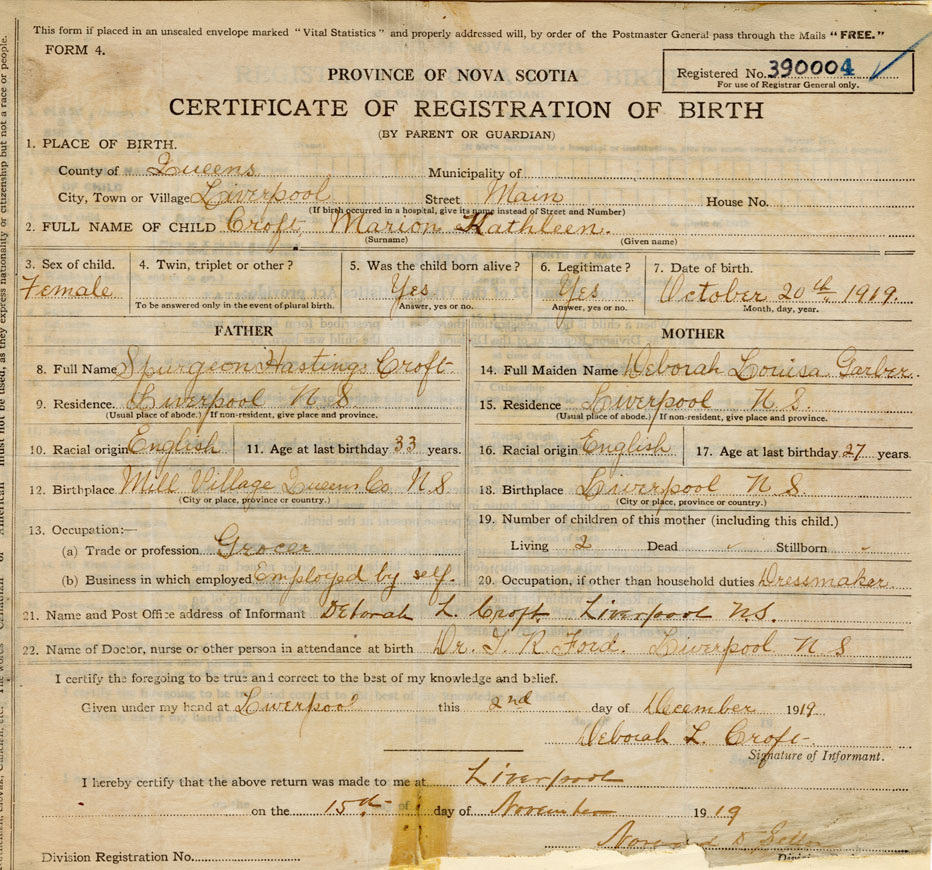 This form if placed in an unsealed envelope marked "Vital Statistics" and properly addressed will, by order of the Postmaster General pass through the Mails "FREE."
FORM 4.
Registered No. 390004
For use of Registrar General only.
PROVINCE OF NOVA SCOTIA
CERTIFICATE OF REGISTRATION OF BIRTH
(BY PARENT OR GUARDIAN)
1. PLACE OF BIRTH.
County of Queens Municipality of
City, Town or Village Liverpool Street Main House No.
(If birth occurred in a hospital, give its name instead of Street and Number)
2. FULL NAME OF CHILD Croft, Marion Kathleen.
(Surname) (Given name)
3. Sex of child. 4. Twin, triplet or other? 5. Was the child born alive? 6. Legitimate? 7. Date of birth.
Female Yes Yes October 20th, 1919.
To be answered only in the event of plural birth. Answer, yes or no. Answer, yes or no. Month, day, year.
FATHER MOTHER
8. Full Name Spurgeon Hastings Croft 14. Full Maiden Name Deborah Louisa Garber.
9. Residence. Liverpool N S. 15. Residence Liverpool N S.
(Usual place of abode.) If non-resident, give place and province. (Usual place of abode.) If non-resident, give place and province.
10. Racial origin English 11. Age at last birthday 33 years. 16. Racial origin English 17. Age at last birthday 27 years.
12. Birthplace Mill Village Queens Co. N.S 18. Birthplace Liverpool N S.
(City or place, province or country.) (City or place, province or country.)
13. Occupation:— 19. Number of children of this mother (including this child.)
(a) Trade or profession Grocer Living 2 Dead Stillborn
(b) Business in which employed Employed by self. 20. Occupation, if other than household duties Dressmaker.
21. Name and Post Office address of Informant Deborah L. Croft. Liverpool N.S.
22. Name of Doctor, nurse or other person in attendance at birth Dr. J. R. Ford. Liverpool N S
I certify the foregoing to be true and correct to the best of my knowledge and belief.
Given under my hand at Liverpool this 2nd day of December 1919
Deborah L. Croft
Signature of Informant.
I hereby certify that the above return was made to me at Liverpool
on the 15th day of November 1919
Division Registration No.
must not be used, as they express nationality or citizenship but not a race or people.